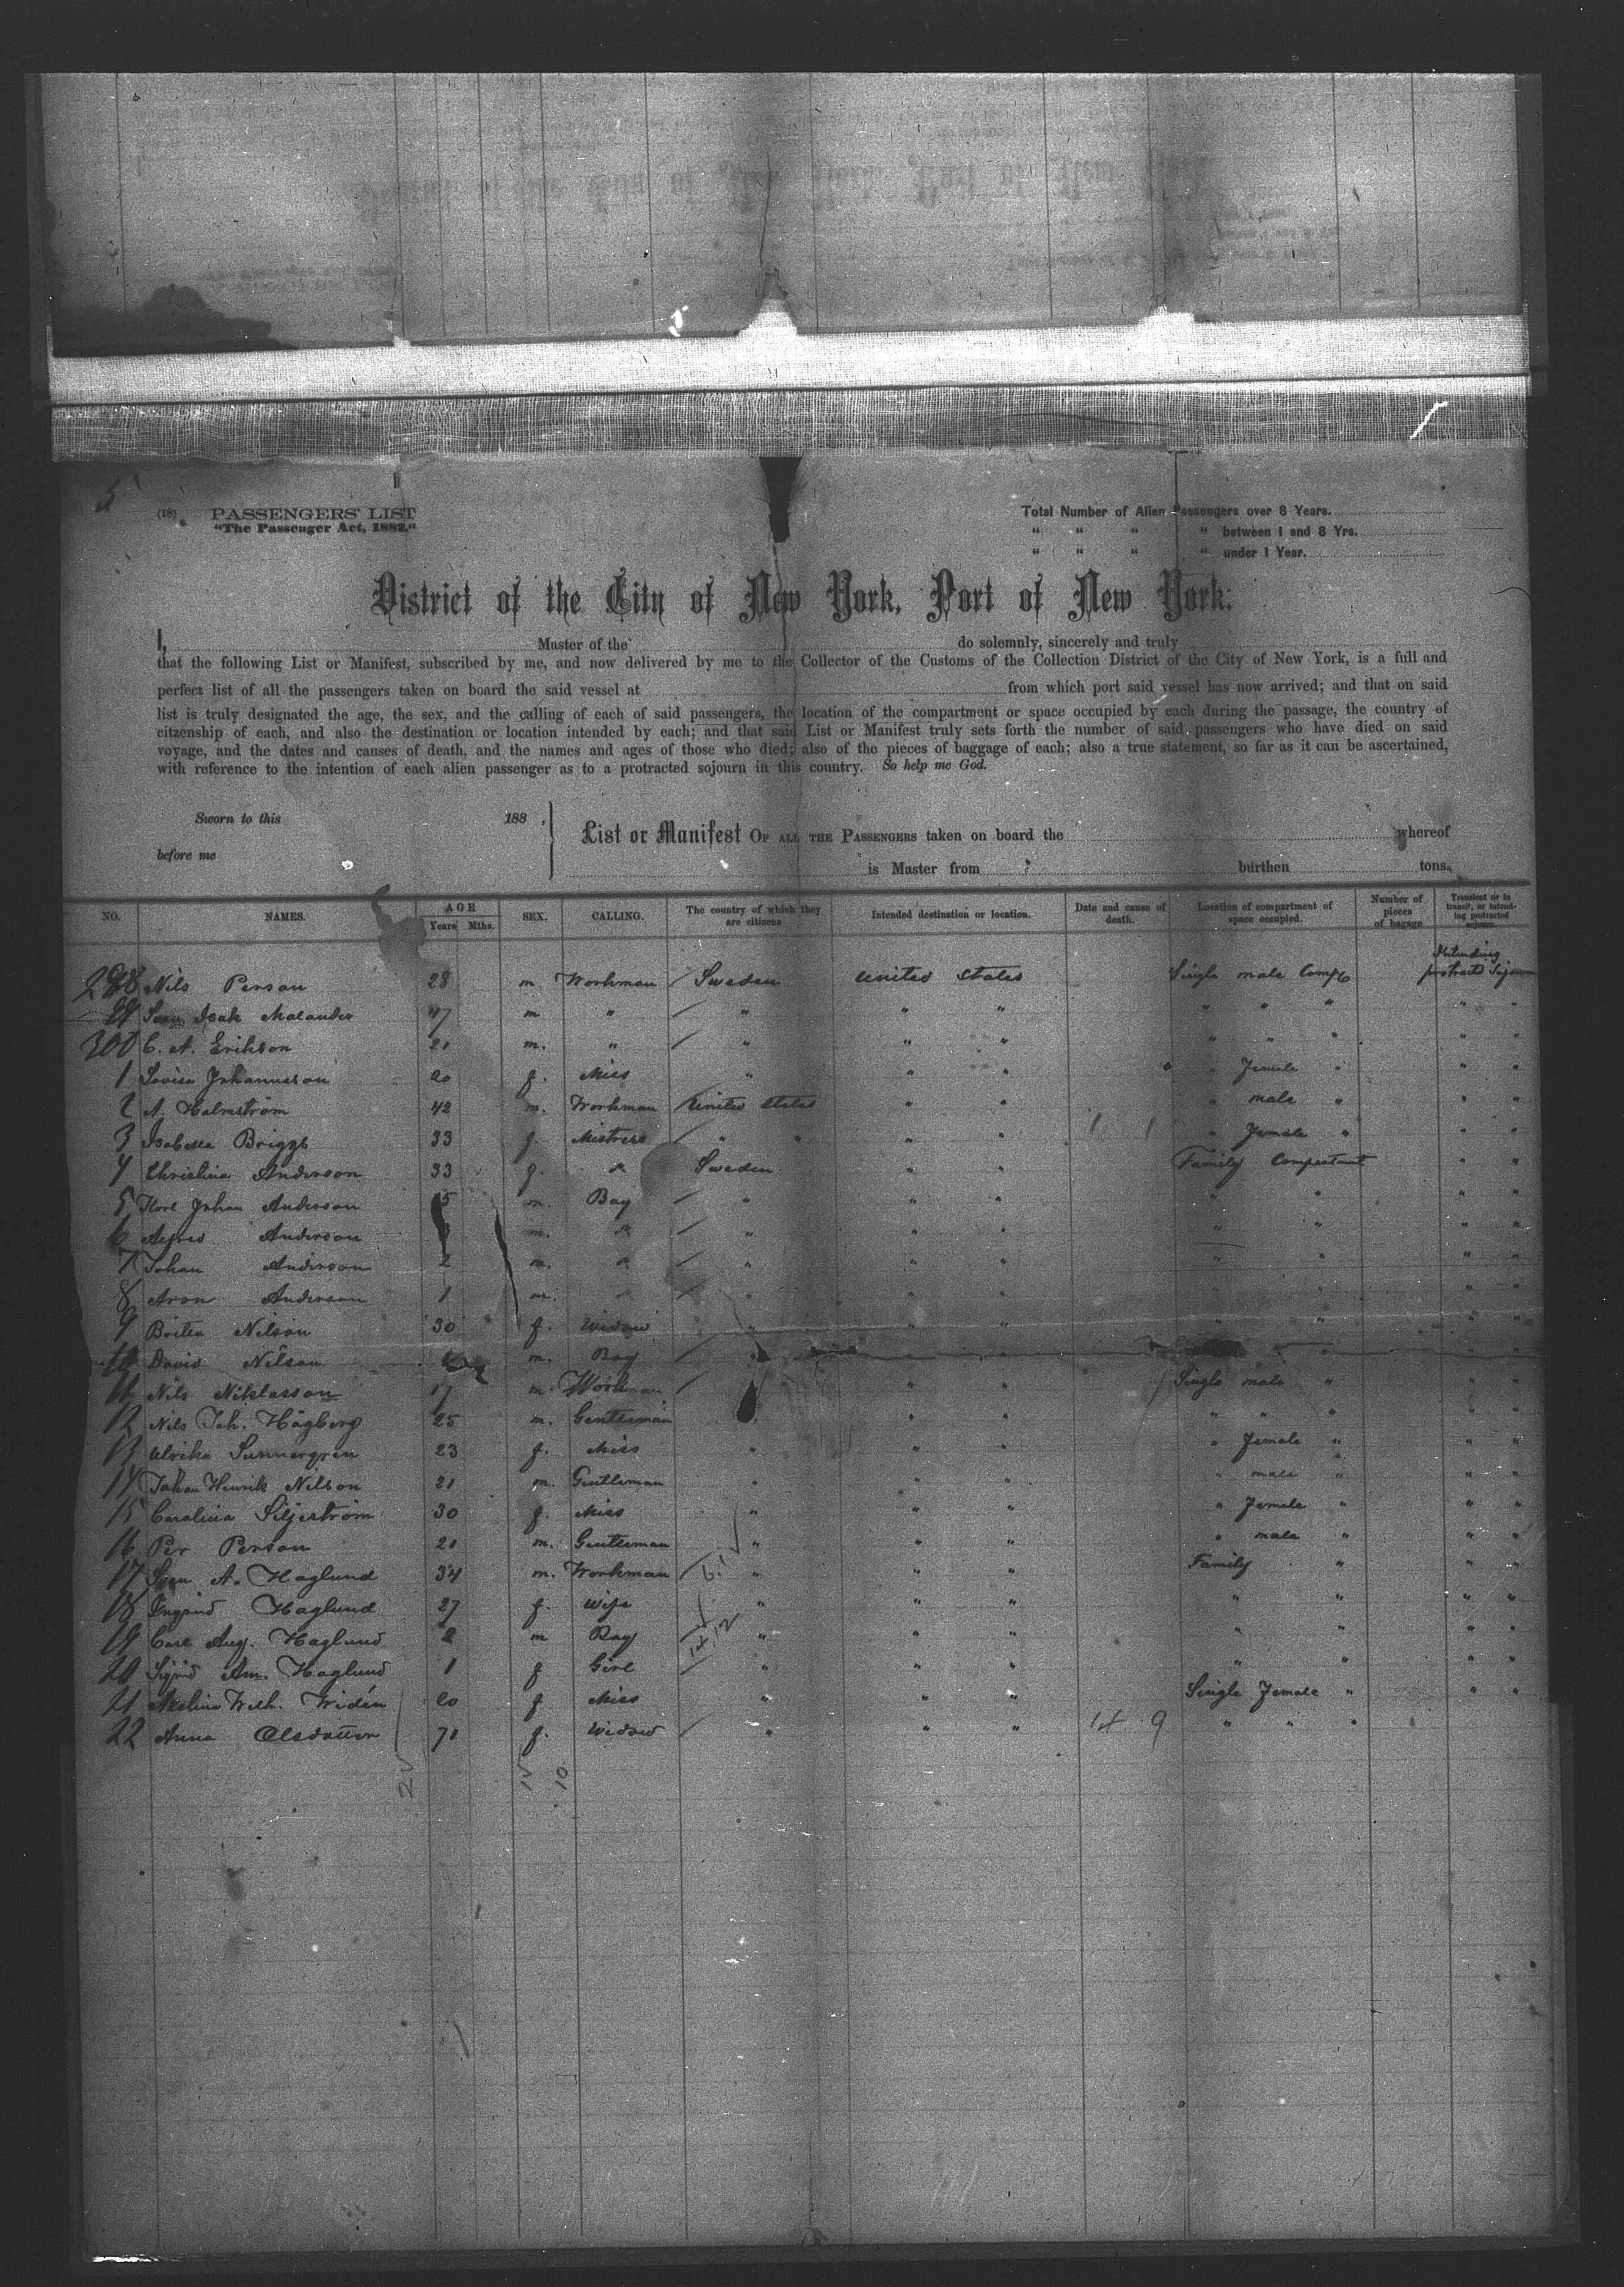 5
(18) PASSENGERS' LIST
"The Passenger Act, 1882."
Total Number of Alien Passengers over 8 Years.
" " " " between 1 and 8 Yrs.
" " " " under 1 Year.
District of the City of New York, Port of New York:
I, Master of the do solemnly, sincerely and truly
that the following List or Manifest, subscribed by me, and now delivered by me to the Collector of the Customs of the Collection District of the City of New York, is a full and
perfect list of all the passengers taken on board the said vessel at from which port said vessel has now arrived; and that on said
list is truly designated the age, the sex, and the calling of each of said passengers, the location of the compartment or space occupied by each during the passage, the country of
citzenship of each, and also the destination or location intended by each; and that said List or Manifest truly sets forth the number of said passengers who have died on said
voyage, and the dates and causes of death, and the names and ages of those who died; also of the pieces of baggage of each; also a true statement, so far as it can be ascertained,
with reference to the intention of each alien passenger as to a protracted sojourn in this country. So help me God.
Sworn to this 188 .
before me
List or Manifest OF ALL THE PASSENGERS taken on board the whereof
is Master from burthen tons.
NO. NAMES. AGE Years Mths. SEX. CALLING. The country of which they are citizens Intended destination or location. Date and cause of death. Location of compartment of space occupied. Number of pieces of bagage Transient or in transit, or intending protracted sojourn.
298 Nils Persan 28 m Workman Sweden United States Single male Comp Intending protracted Sojourn
99 Sven Isak Malander 47 m " " " " " " " " "
300 C. A. Erikson 21 m. " " " " " " " " "
1 Lovisa Johannesson 20 f. Miss " " " " Female " " "
2 A. Holmström 42 m. Workman United States " " " male " " "
3 Isabella Briggs 33 f. Mistress " " " " " Female " " "
4 Christina Anderson 33 f. " Sweden " " Family Compartment " "
5 Karl Johan Anderson 5 m. Boy " " " " " " "
6 Anderson m. " " " " " " " "
7 Johan Anderson 2 m. " " " " " " " "
8 Aron Anderson 1 m. " " " " " " " "
9 Britta Nilson 30 f. Widow " " " " " " "
10 David Nilson m. Boy " " " " " "
11 Nils Niklasson 17 m. Workman " " Single male " " "
12 Nils Joh. Högberg 25 m. Gentleman " " " " " " "
13 Ulrika Sunnergren 23 f. Miss " " " " Female " " "
14 Johan Henrik Nilson 21 m. Gentleman " " " " male " " "
15 Carolina Siljeström 30 f. Miss " " " " Female " " "
16 Per Person 21 m. Gentleman " " " " male " " "
17 Sven A. Haglund 34 m. Workman " " " Family " " "
18 Ingrid Haglund 27 f. Wife " " " " " " "
19 Carl Aug. Haglund 2 m Boy " " " " " " "
20 Sigrid Am. Haglund 1 f Girl " " " " " " "
21 Wilh. Widén 20 f Miss " " " Single Female " " "
22 Anna Olsdotter 71 f. Widow " " " " " " "